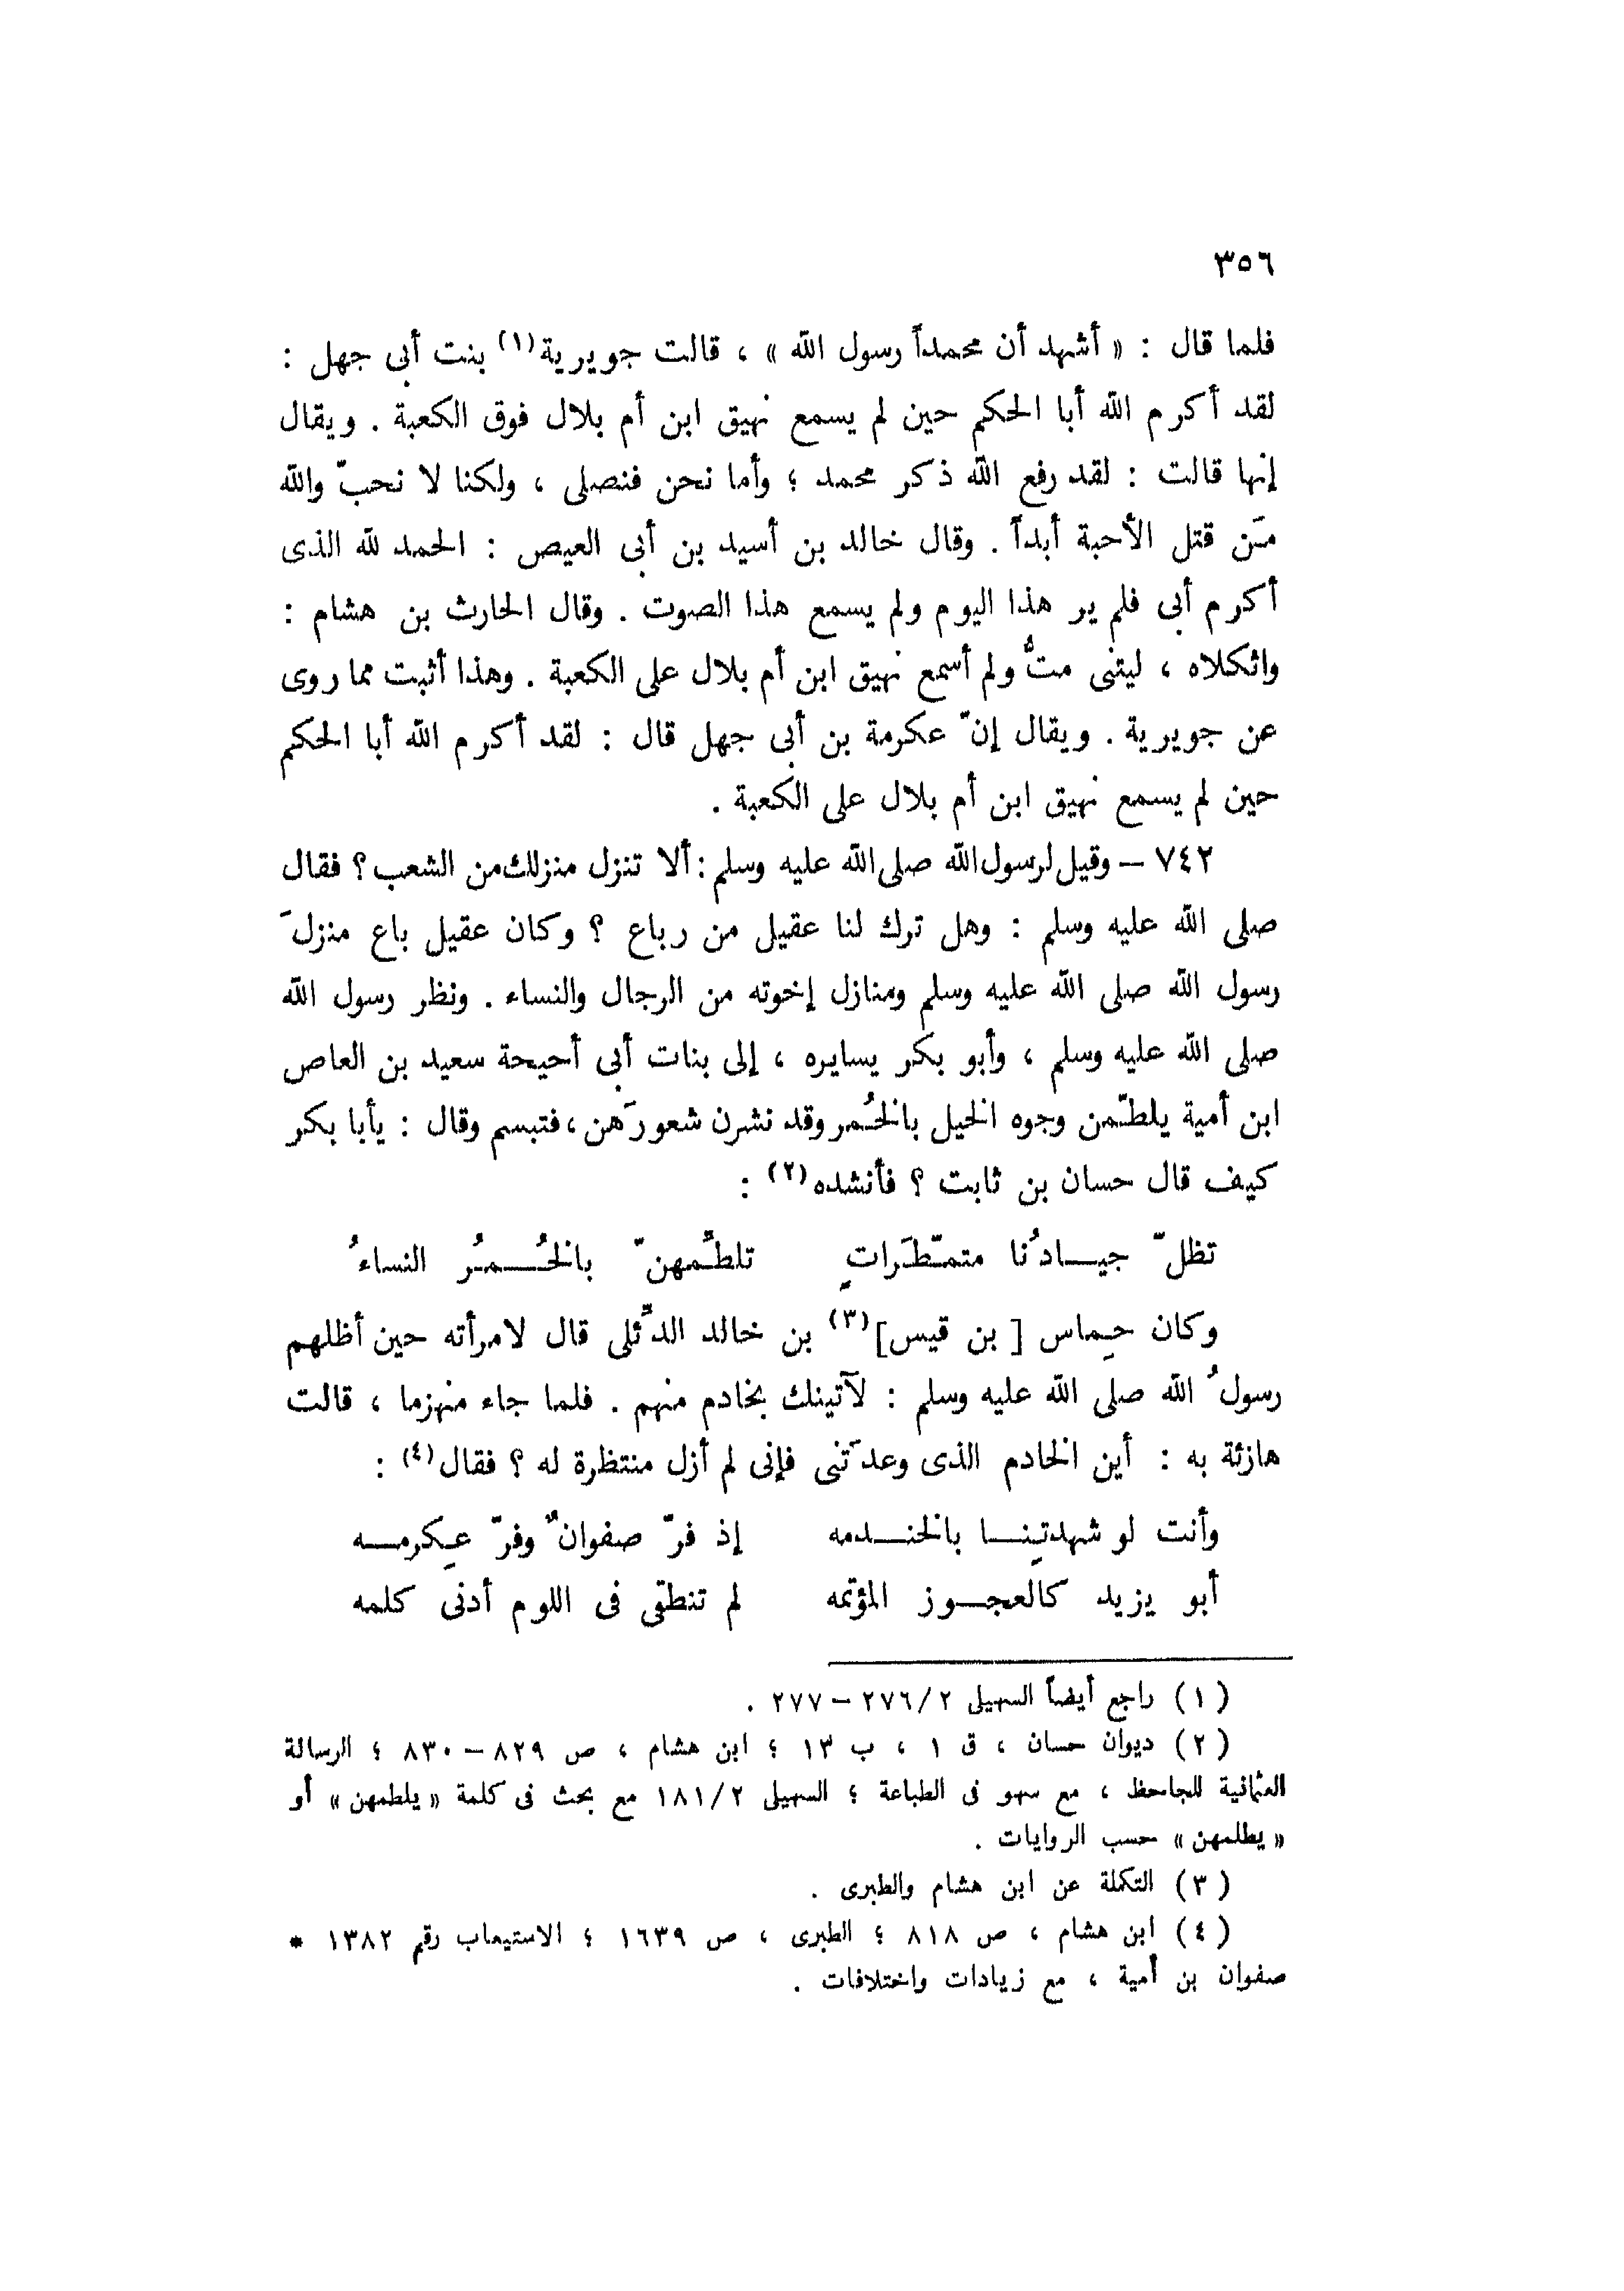 ٣٥٦
فلما قال : « أشهد أن محمداً رسول الله » ، قالت جويرية(١) بنت أبى جهل :
لقد أكرم الله أبا الحكم حين لم يسمع نهيق ابن أم بلال فوق الكعبة . ويقال
إنها قالت : لقد رفع الله ذكر محمد ؛ وأما نحن فنصلى ، ولكنا لا نحبّ والله
مَن قتل الأحبة أبداً . وقال خالد بن أسيد بن أبى العيص : الحمد لله الذى
أكرم أبى فلم ير هذا اليوم ولم يسمع هذا الصوت . وقال الحارث بن هشام :
واثكلاه ، ليتنى متُّ ولم أسمع نهيق ابن أم بلال على الكعبة . وهذا أثبت مما روى
عن جويرية . ويقال إنّ عكرمة بن أبى جهل قال : لقد أكرم الله أبا الحكم
حين لم يسمع نهيق ابن أم بلال على الكعبة .
٧٤٢ – وقيل لرسول الله صلى الله عليه وسلم : ألا تنزل منزلك من الشعب ؟ فقال
صلى الله عليه وسلم : وهل ترك لنا عقيل من رباع ؟ وكان عقيل باع منزلَ
رسول الله صلى الله عليه وسلم ومنازل إخوته من الرجال والنساء . ونظر رسول الله
صلى الله عليه وسلم ، وأبو بكر يسايره ، إلى بنات أبى أحيحة سعيد بن العاص
ابن أمية يلطّمن وجوه الخيل بالخُمر وقد نشرن شعورَهن ، فتبسم وقال : يأبا بكر
كيف قال حسان بن ثابت ؟ فأنشده(٢) :
تظلّ جيادُنا متمطّرَاتٍ تلطِّمهنّ بالخُمُرُ النساءُ
وكان حِماس [ بن قيس](٣) بن خالد الدِّئلى قال لامرأته حين أظلهم
رسولُ الله صلى الله عليه وسلم : لآتينك بخادم منهم . فلما جاء منهزما ، قالت
هازئة به : أين الخادم الذى وعدتَنى فإنى لم أزل منتظرة له ؟ فقال(٤) :
وأنت لو شهدتِنا بالخندمه إذ فرّ صفوانٌ وفرّ عِكرمه
أبو يزيد كالعجوز المؤتمه لم تنطقى فى اللوم أدنى كلمه
(١) راجع أيضاً السهيلى ٢/٢٧٦ – ٢٧٧ .
(٢) ديوان حسان ، ق ١ ، ب ١٣ ؛ ابن هشام ، ص ٨٢٩ – ٨٣٠ ؛ الرسالة
العثمانية للجاحظ ، مع سهو فى الطباعة ؛ السهيلى ٢/١٨١ مع بحث فى كلمة « يلطمهن » أو
« يطلمهن » حسب الروايات .
(٣) التكملة عن ابن هشام والطبرى .
(٤) ابن هشام ، ص ٨١٨ ؛ الطبرى ، ص ١٦٣٩ ؛ الاستيعاب رقم ١٣٨٢ *
صفوان بن أمية ، مع زيادات واختلافات .